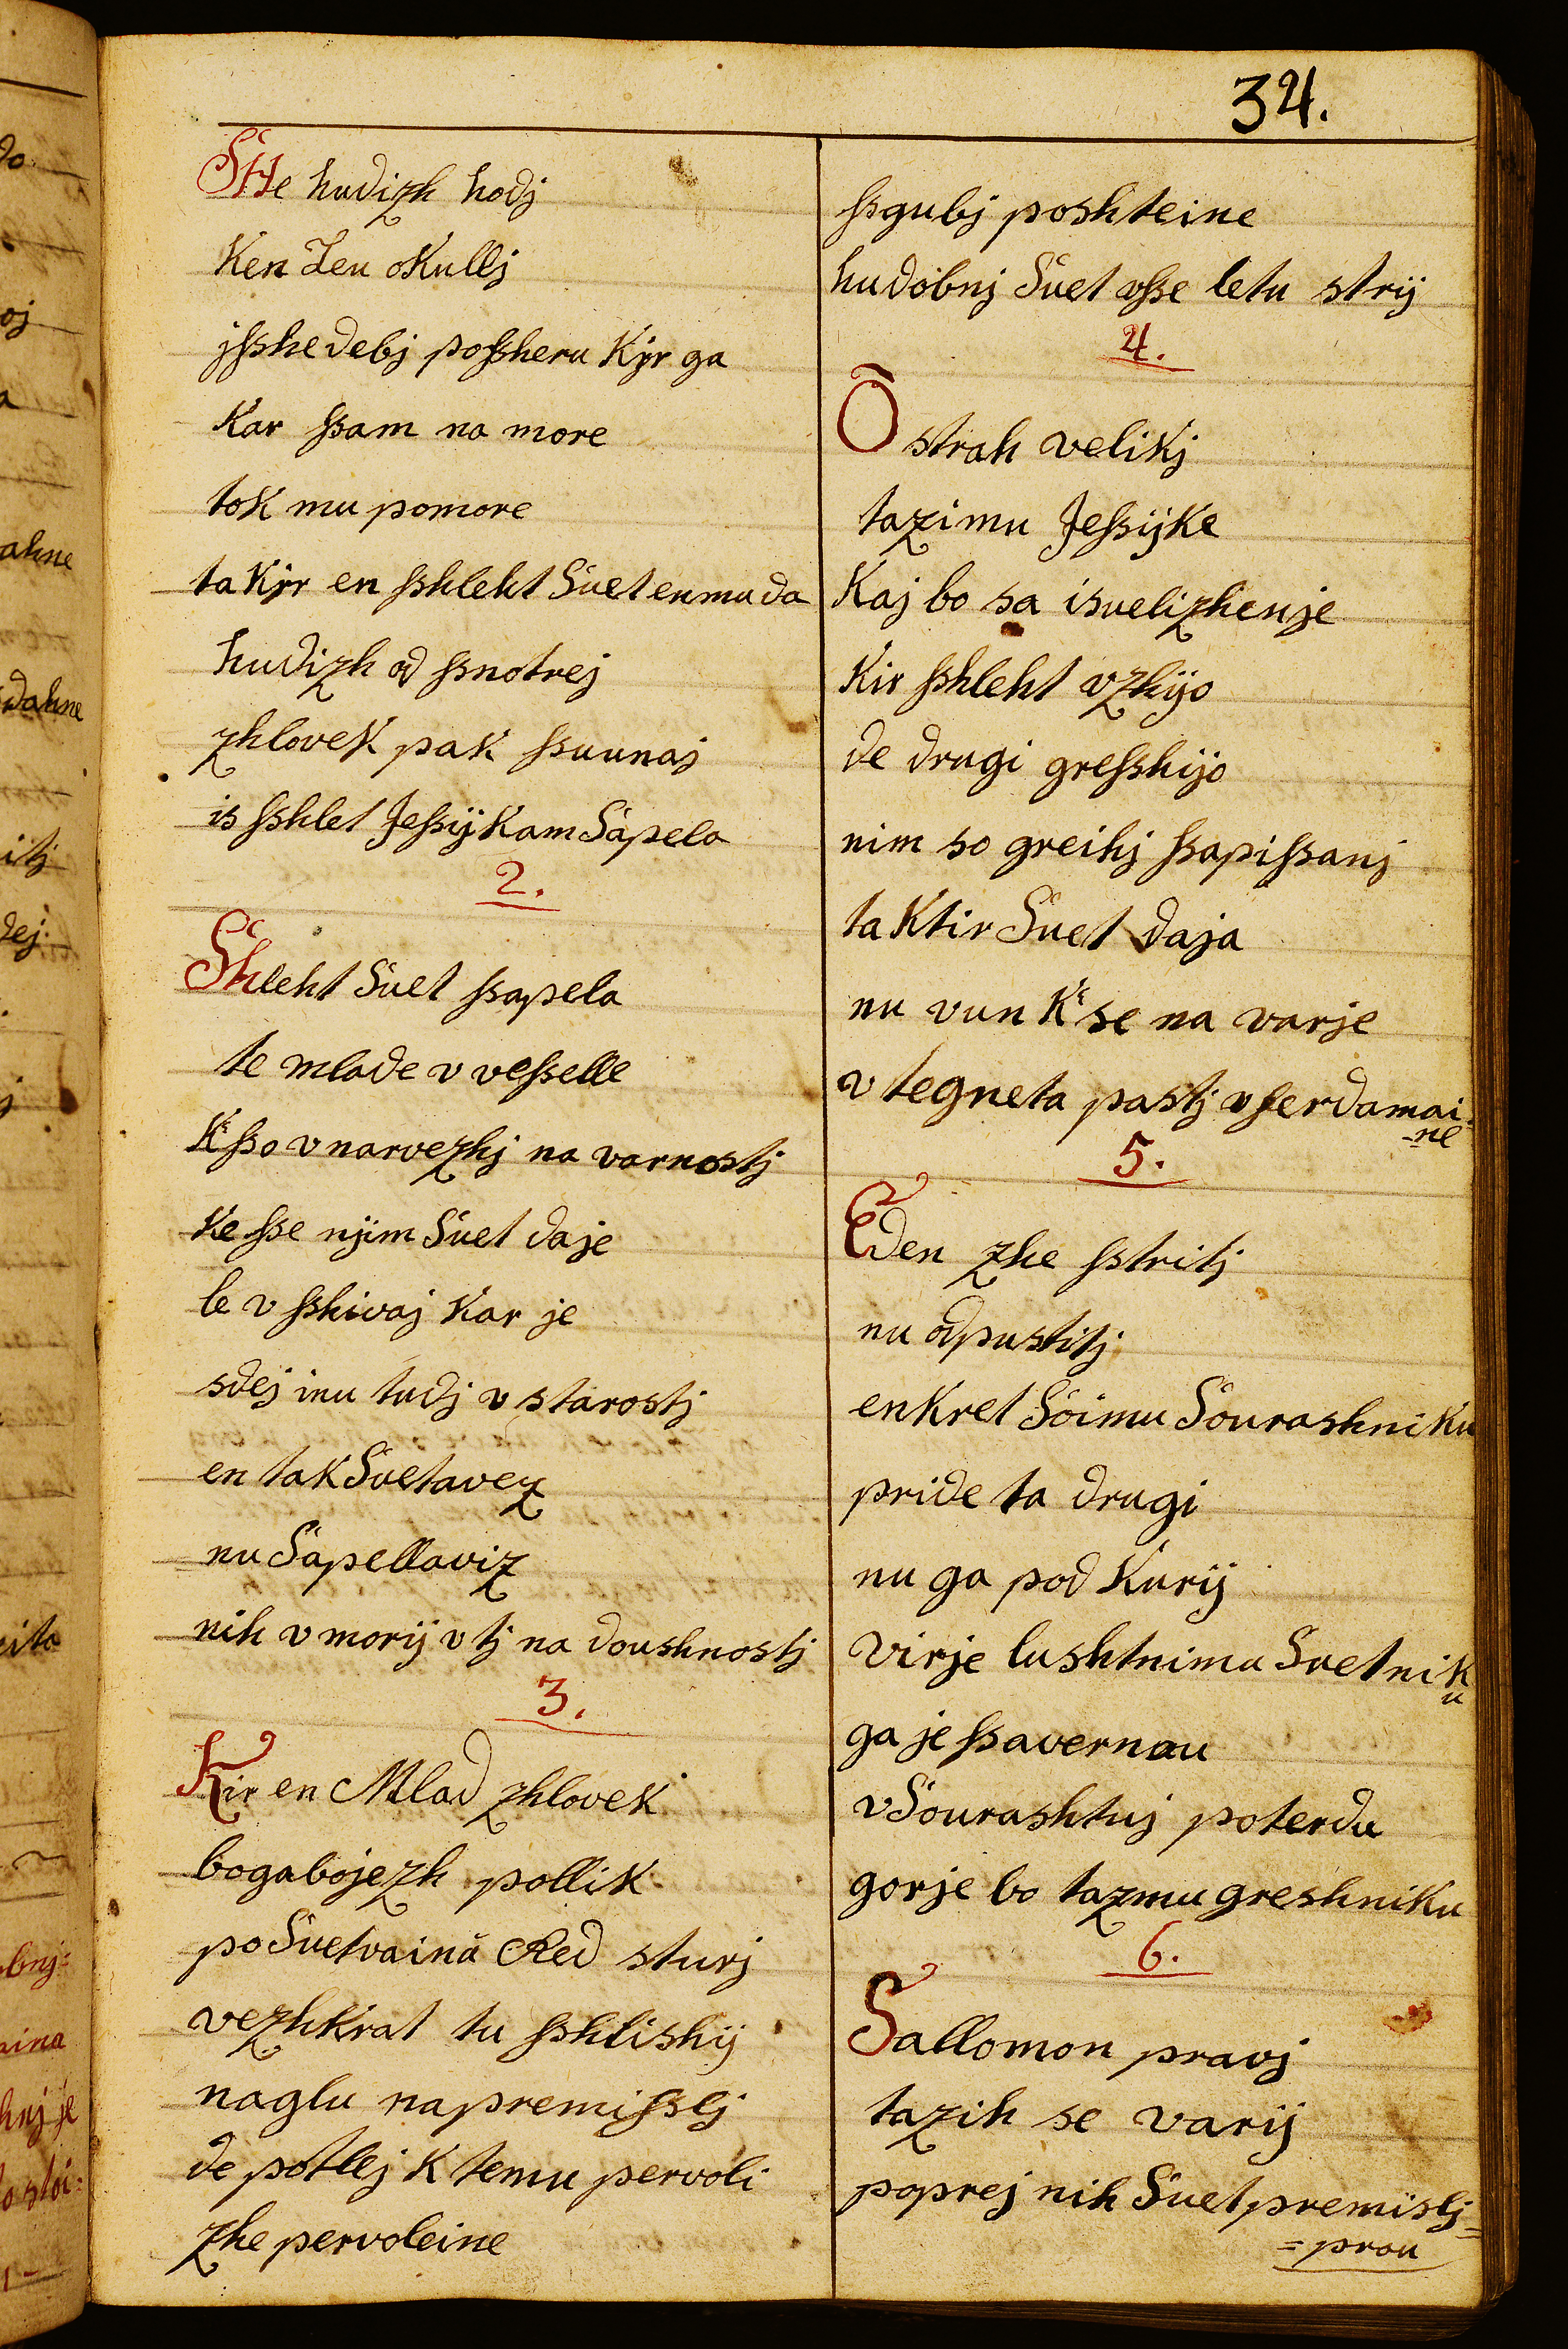 34.
SHe hudizh hodj
Ken Leu oKullj
jſshe debj poſsheru Kÿr ga
Kar ſsam na more
tok mu pomore
ta Kÿr en ſshleht Suet enmu da
hudizh od ſsnotrej
zhlovek pak ſsuunaj
is ſshlet Jeſsijkam Sapela
2.
Shleht Suet ſsapela
te mlade v veſselle
Kſso v narvezhj na varnostj
Ke ſse njim Suet daje
le v ſshivaj Kar je
sdej inu tudj v starostj
en tak Svetavez
nu Sapellaviz
nih v morij v tj na doushnostj
3.
Kir en Mlad zhlovek
bogabojezh pollik
po Suetvaina Red sturj
vezhkrat tu ſshlishij
naglu napremiſslj
de potlej K temu pervoli
zhe pervoleine
ſsgubj poshteine
hudobnj Suet vſse letu strij
4.
O strah velikj
tazimu Jeſsijke
Kaj bo sa isvelizhenje
Kir ſshleht vzhijo
de drugi greſshijo
nim so greihj ſsapiſsanj
ta Ktir Suet daja
nu vun K se na varje
v tegneta pastj v ferdamai
-ne
5.
Eden zhe ſstritj
nu odpustitj
enkret Soimu Sourashniku
pride ta drugi
nu ga pod Kurij
virje lushtnimu Svetnik
u
ga je ſsavernau
v Sourashtuj poterdu
gorje bo tazmu greshniku
6.
Sallomon pravj
tazih se varij
poprej nih Suet premislj=
=prou